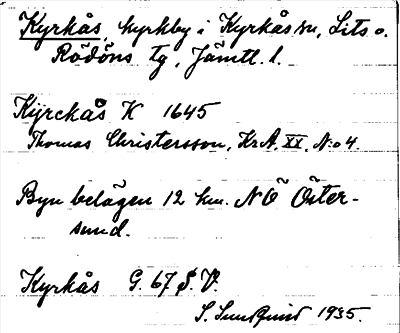 Kyrkås, kyrkby i Kyrkås sn, Lits o.
Rödöns tg, Jämtl. l.
Kyrckås K 1645
Thomas Christersson, KrA, XX, N:o 4.
Byn belägen 12 km. NÖ Öster-
sund.
Kyrkås G. 67 S. V.
S. Sundquist 1935.